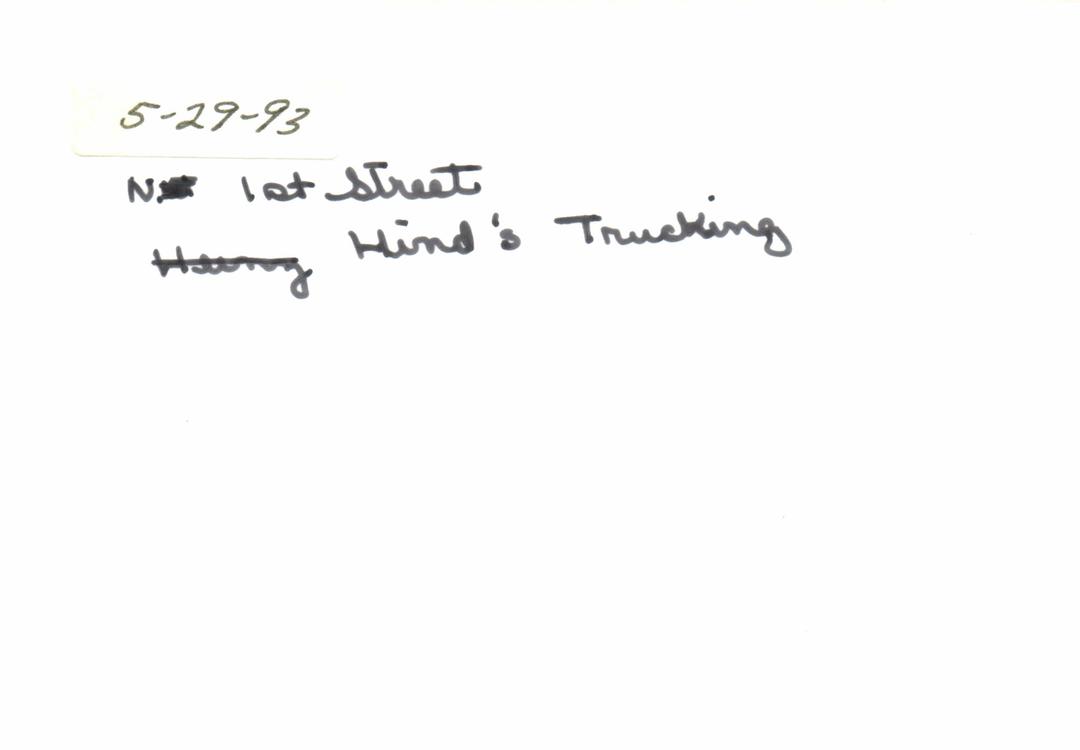 5-29-93
N. 1st Street
Hind's Trucking